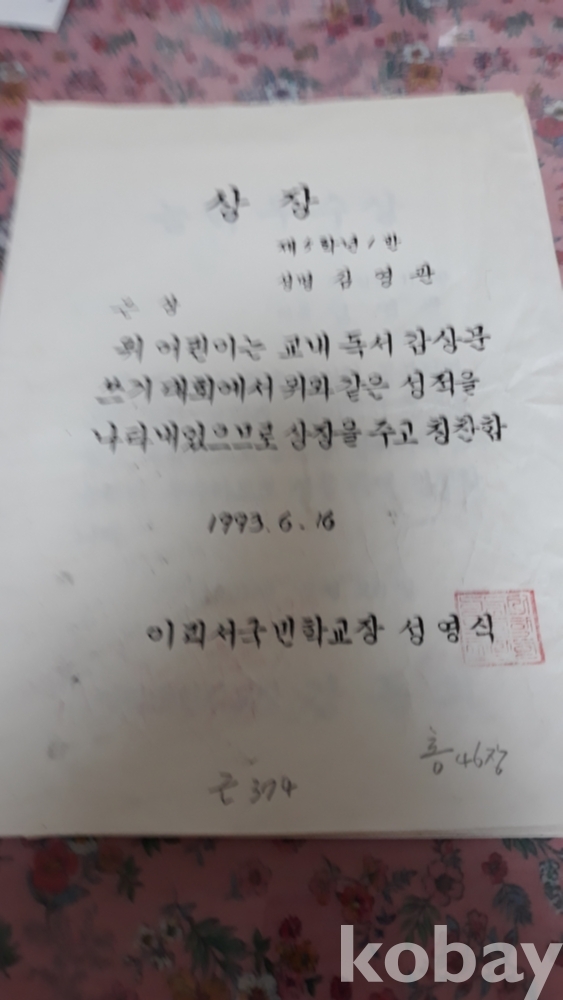 상 장
제 학년 1 반
성명 김 영 관
은 상
위 어린이는 교내 독서 감상문
쓰기 대회에서 위와 같은 성적을
나타내었으므로 상장을 주고 칭찬함
1993. 6. 16
이리서국민학교장 성 영 식
총 46장
근 374
kobay